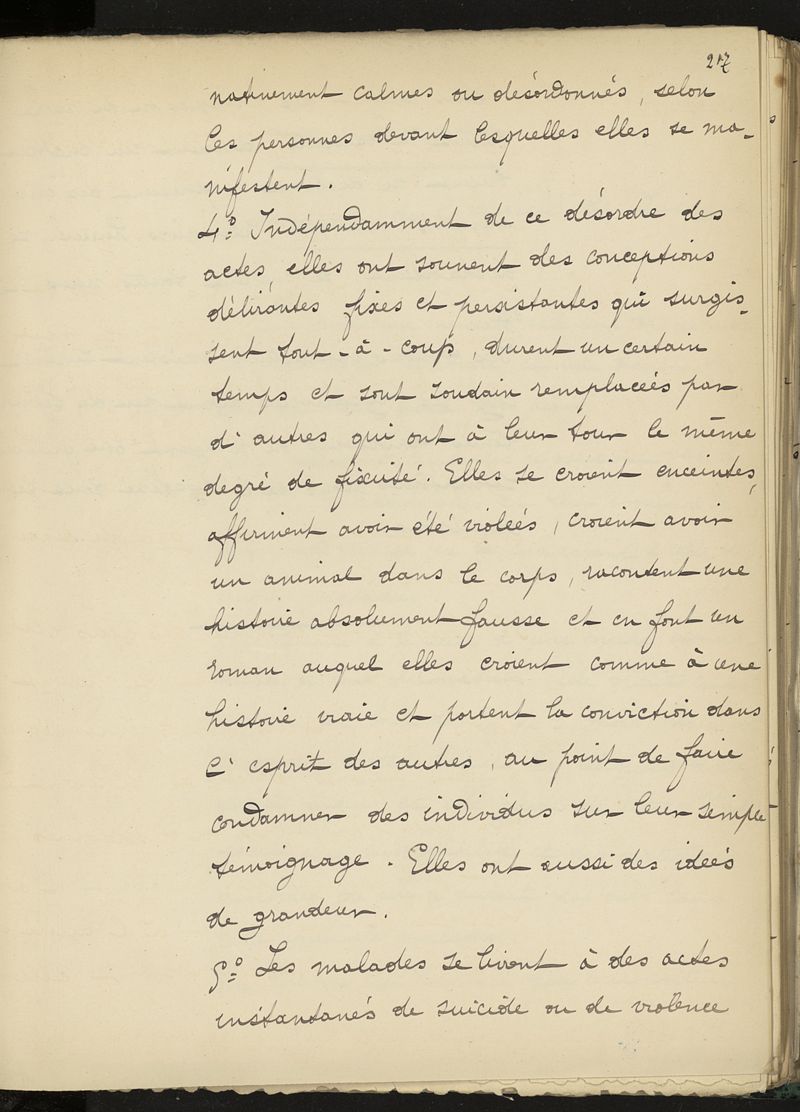 217
nativement calmes ou désordonnés, selon
les personnes devant lesquelles elles se ma-
nifestent.
4:° Indépendamment de ce désordre des
actes, elles ont souvent des conceptions
délirantes fixes et persistantes qui surgis-
sent tout-à-coup, durent un certain
temps et sont soudain remplacées par
d'autres qui ont à leur tour le même
degré de fixité. Elles se croient enceintes,
affirment avoir été violées, croient avoir
un animal dans le corps, racontent une
histoire absolument fausse et en font un
roman auquel elles croient comme à une
histoire vraie et portent la conviction dans
l'esprit des autres, au point de faire
condamner des individus sur leur simple
témoignage. Elles ont aussi des idées
de grandeur.
5:° Les malades se livrent à des actes
instantanés de suicide ou de violence